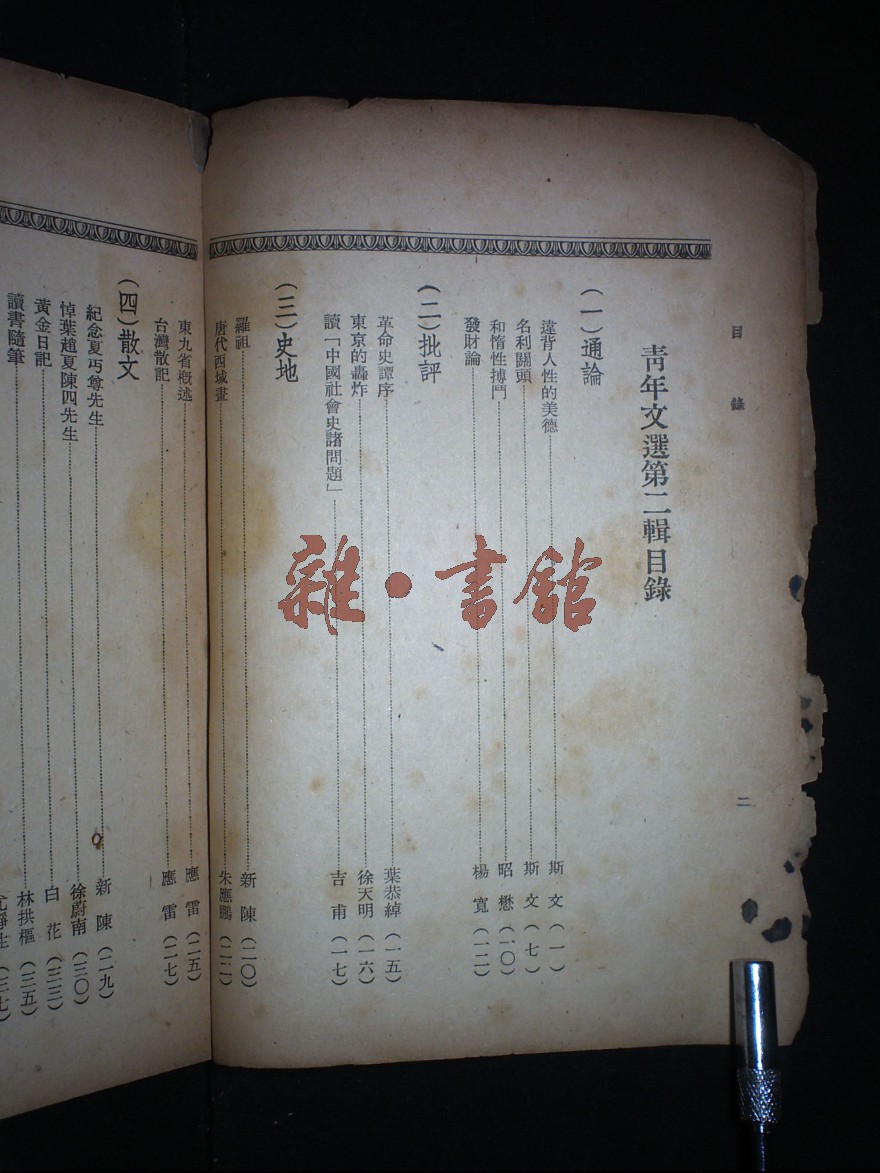 目錄
二
青年文選第二輯目錄
（一）通論
違背人性的美德 斯文（一）
名利關頭 斯文（七）
和惰性搏鬥 昭懋（一〇）
發財論 楊寬（一二）
（二）批評
革命史譚序 葉恭綽（一五）
東京的轟炸 徐天明（一六）
讀「中國社會史諸問題」 吉甫（一七）
（三）史地
羅祖 新陳（二〇）
唐代西域畫 朱應鵬（二二）
東九省概述 應雷（二五）
台灣散記 應雷（二七）
（四）散文
紀念夏丏尊先生 新陳（二九）
悼葉趙夏陳四先生 徐蔚南（三〇）
黃金日記 白花（三三）
讀書隨筆 林拱樞（三五）
（三七）
雜·書館